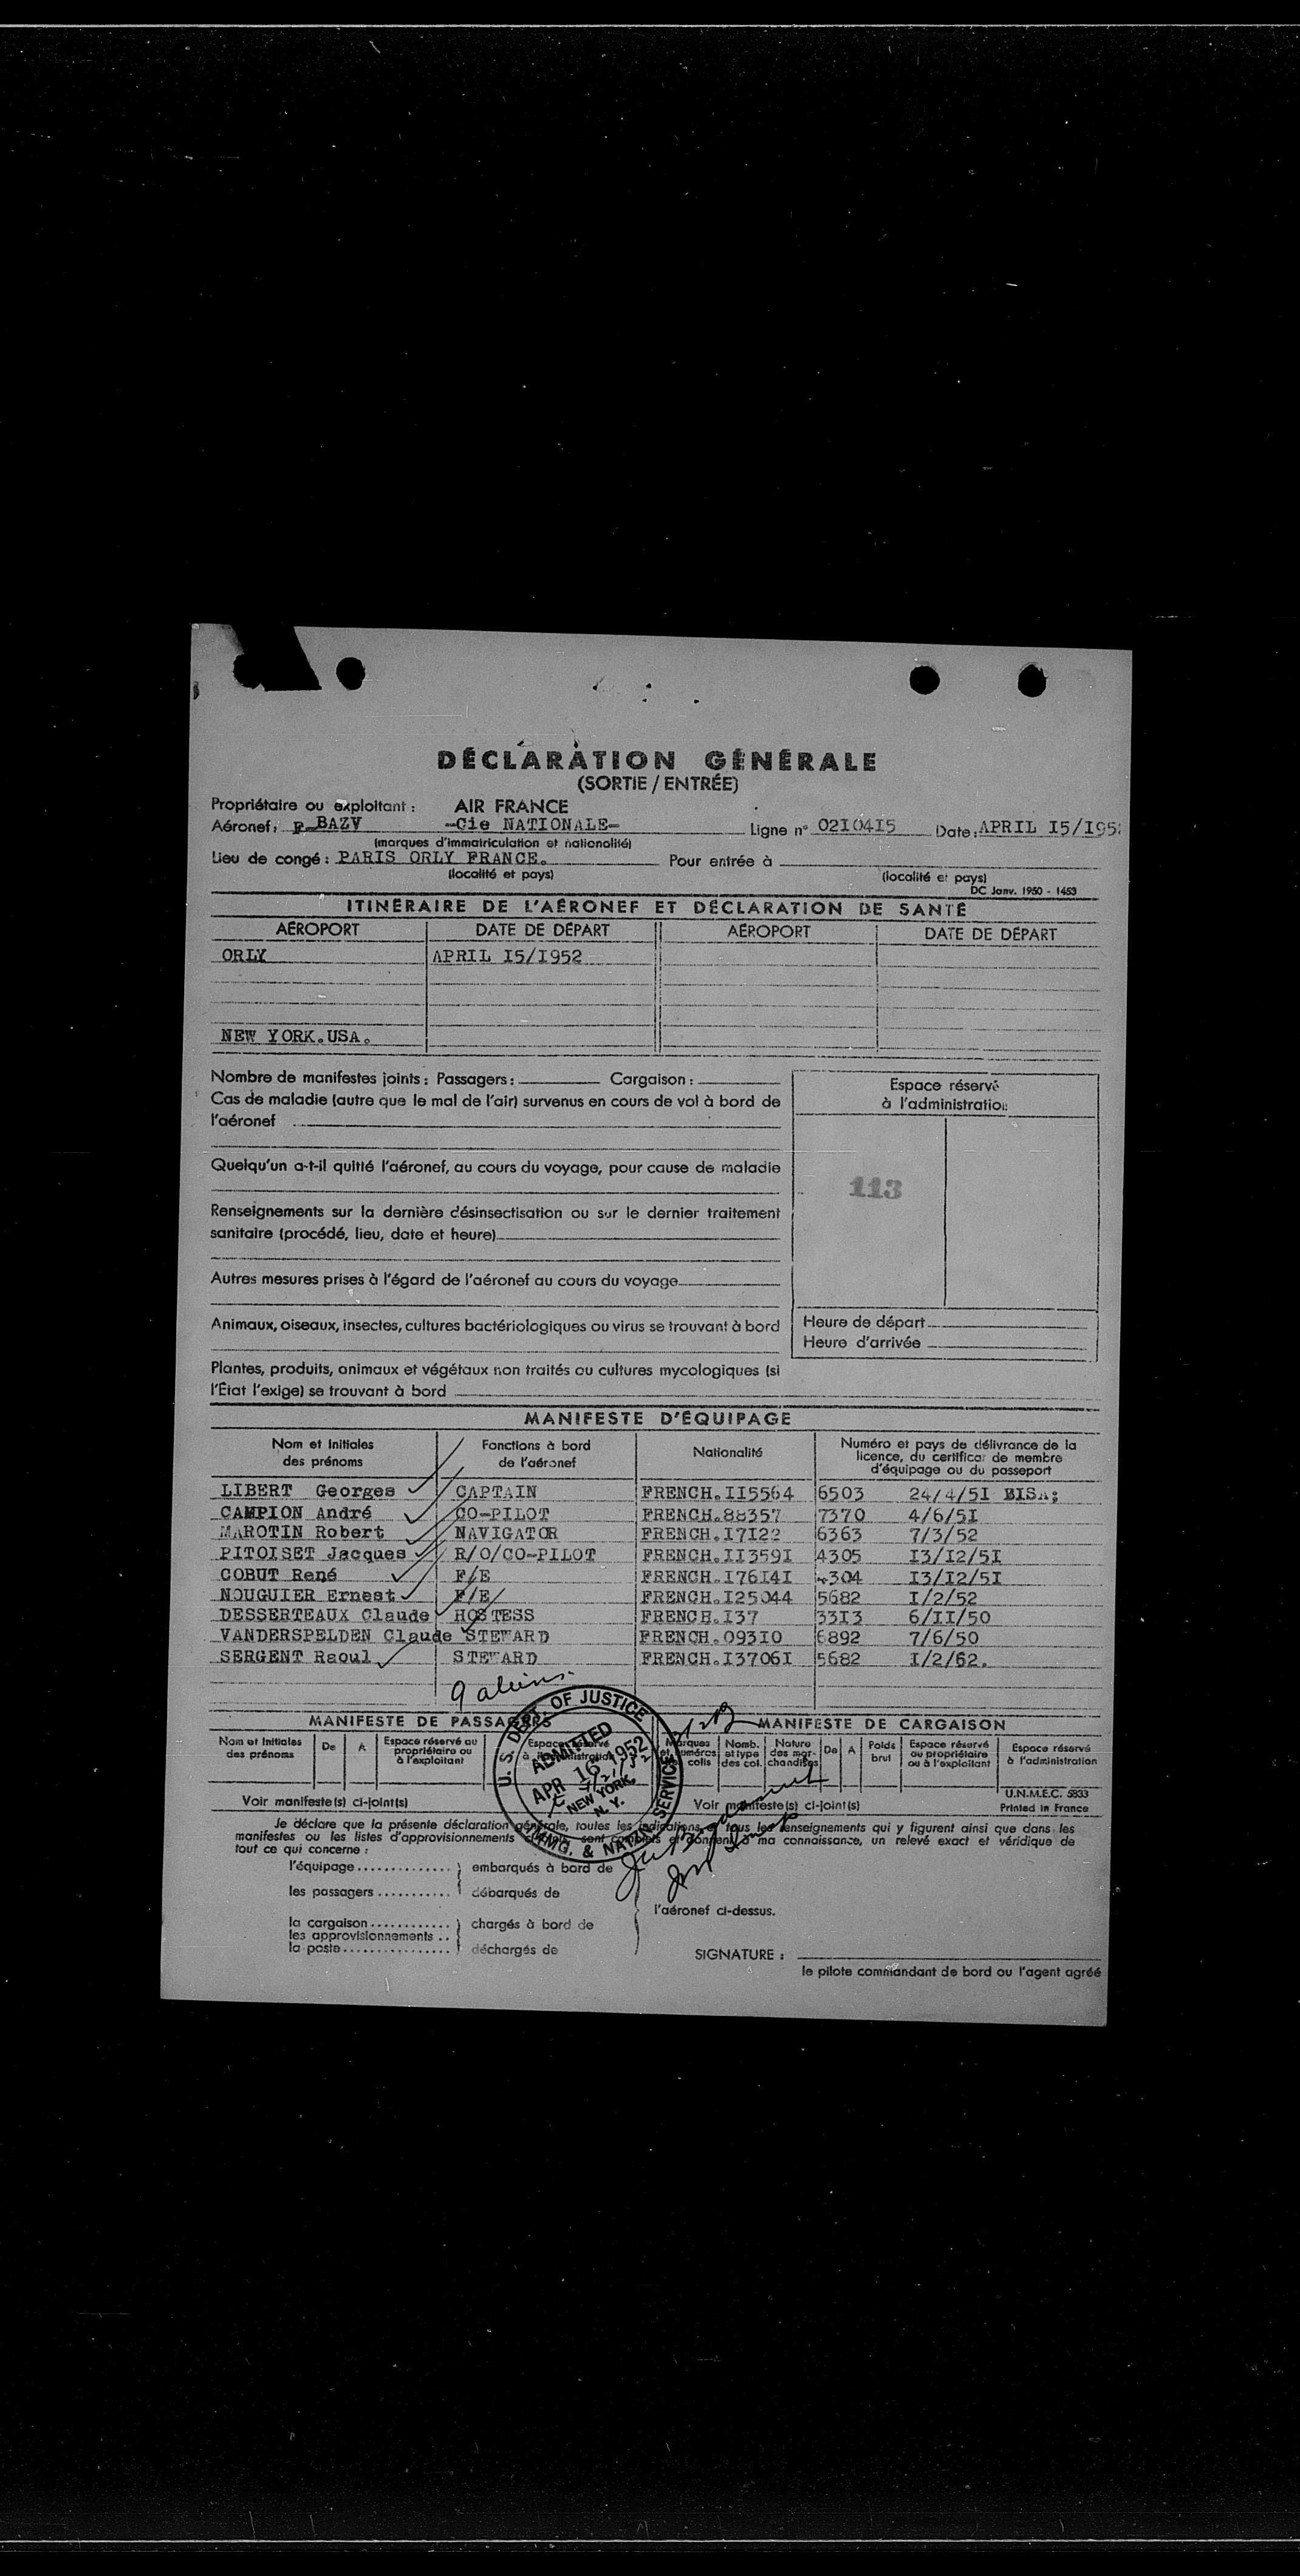 DÉCLARATION GÉNÉRALE
(SORTIE / ENTRÉE)
Propriétaire ou exploitant : AIR FRANCE
Aéronef : F-BAZV -Cie NATIONALE- Ligne n° 02I04I5 Date : APRIL I5/I95
(marques d'immatriculation et nationalité)
Lieu de congé : PARIS ORLY FRANCE. Pour entrée à
(localité et pays) (localité et pays)
DC Janv. 1950 - 1453
ITINÉRAIRE DE L'AÉRONEF ET DÉCLARATION DE SANTÉ
AÉROPORT DATE DE DÉPART AÉROPORT DATE DE DÉPART
ORLY APRIL I5/I952
NEW YORK.USA.
Nombre de manifestes joints : Passagers : Cargaison :
Cas de maladie (autre que le mal de l'air) survenus en cours de vol à bord de
l'aéronef
Quelqu'un a-t-il quitté l'aéronef, au cours du voyage, pour cause de maladie
Renseignements sur la dernière désinsectisation ou sur le dernier traitement
sanitaire (procédé, lieu, date et heure)
Autres mesures prises à l'égard de l'aéronef au cours du voyage
Animaux, oiseaux, insectes, cultures bactériologiques ou virus se trouvant à bord
Plantes, produits, animaux et végétaux non traités ou cultures mycologiques (si
l'État l'exige) se trouvant à bord
Espace réservé
à l'administration
113
Heure de départ
Heure d'arrivée
MANIFESTE D'ÉQUIPAGE
Nom et Initiales Fonctions à bord Nationalité Numéro et pays de délivrance de la
des prénoms de l'aéronef licence, du certificat de membre
d'équipage ou du passeport
LIBERT Georges CAPTAIN FRENCH.II5564 6503 24/4/5I BISA;
CAMPION André CO-PILOT FRENCH.88357 7370 4/6/5I
MAROTIN Robert NAVIGATOR FRENCH.I7I22 6363 7/3/52
PITOISET Jacques R/O/CO-PILOT FRENCH.II359I 4305 I3/I2/5I
COBUT René F/E FRENCH.I76I4I 4304 I3/I2/5I
NOUGUIER Ernest F/E FRENCH.I25044 5682 I/2/52
DESSERTEAUX Claude HOSTESS FRENCH.I37 33I3 6/II/50
VANDERSPELDEN Claude STEWARD FRENCH.093I0 6892 7/6/50
SERGENT Raoul STEWARD FRENCH.I3706I 5682 I/2/62.
9 aliens.
U. S. DEPT. OF JUSTICE
ADMITTED
APR 16 1952
NEW YORK,
N. Y.
IMMIG. & NATZN SERVICE
MANIFESTE DE PASSAGERS MANIFESTE DE CARGAISON
Nom et Initiales des prénoms De A Espace réservé au propriétaire ou à l'exploitant Espace réservé à l'administration
Marques et numéros colis Nomb. et type des col. Nature des mar-chandises De A Poids brut Espace réservé au propriétaire ou à l'exploitant Espace réservé à l'administration
U.N.M.E.C. 5833
Voir manifeste(s) ci-joint(s) Voir manifeste(s) ci-joint(s) Printed in France
Je déclare que la présente déclaration générale, toutes les indications, et tous les renseignements qui y figurent ainsi que dans les
manifestes ou les listes d'approvisionnements ci-joints, sont complets et donnent, à ma connaissance, un relevé exact et véridique de
tout ce qui concerne :
l'équipage embarqués à bord de
les passagers débarqués de
l'aéronef ci-dessus.
la cargaison chargés à bord de
les approvisionnements
la poste déchargés de
SIGNATURE :
le pilote commandant de bord ou l'agent agréé